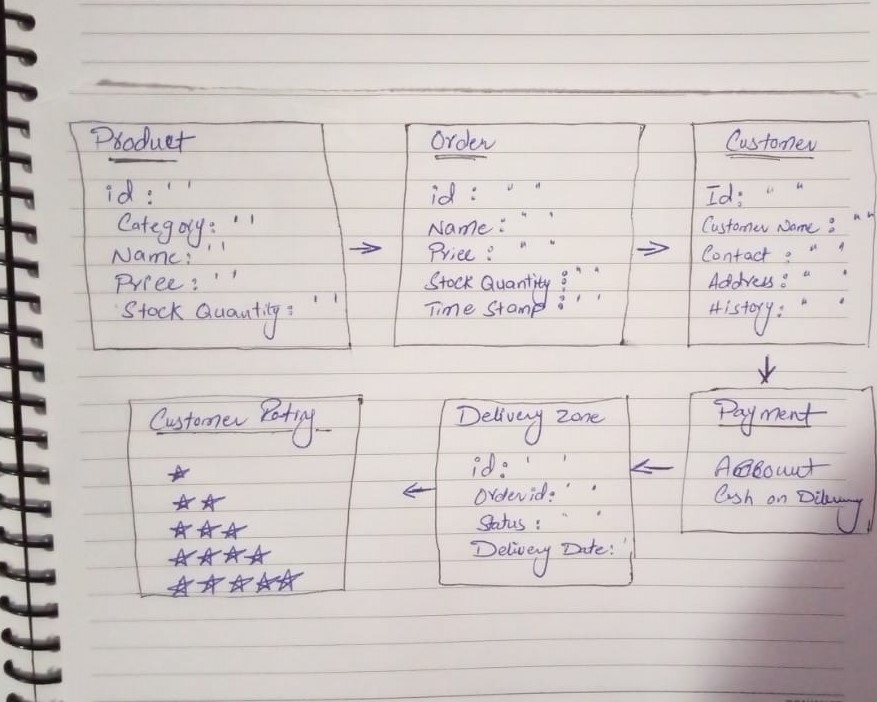 Product
id : ' '
Category : ' '
Name : ' '
Price : ' '
Stock Quantity : ' '
Order
id : " "
Name : " "
Price : " "
Stock Quantity : " "
Time Stamp : ' '
Customer
Id : " "
Customer Name : " "
Contact : " "
Address : " "
History : " "
Payment
Account
Cash on Dilivery
Delivery zone
id : ' '
Order id : ' '
Status : " "
Delivery Date : '
Customer Rating
★
★ ★
★ ★ ★
★ ★ ★ ★
★ ★ ★ ★ ★